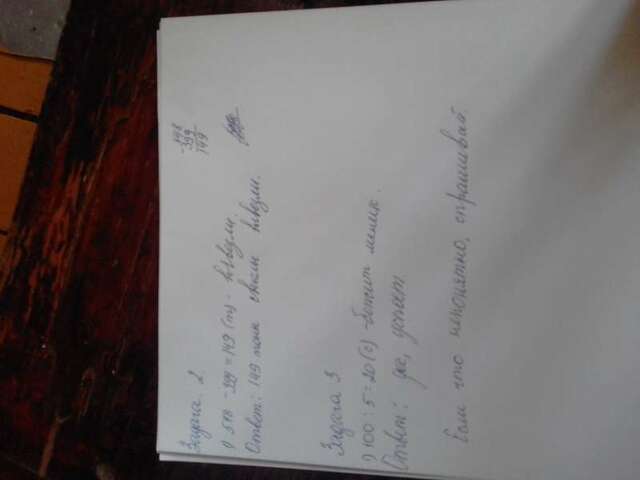 Задача 2
548
- 399
149
1) 548 - 399 = 149 (т) - вывезли.
Ответ: 149 тонн свеклы вывезли.
Задача 3
1) 100 : 5 = 20 (с) - бежит
Ответ: да, успеет
Если что непонятно, спрашивай.